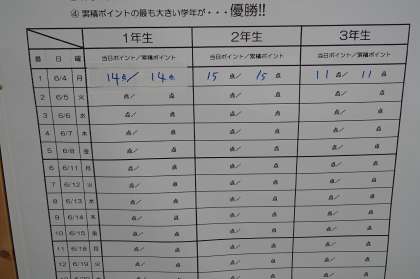 ④ 累積ポイントの最も大きい学年が・・・優勝!!
1年生 2年生 3年生
番 日 曜 当日ポイント／累積ポイント 当日ポイント／累積ポイント 当日ポイント／累積ポイント
1 6/4 月 14点／ 14点 15 点／ 15 点 11点／ 11 点
2 6/5 火 点／ 点 点／ 点 点／ 点
3 6/6 水 点／ 点 点／ 点 点／ 点
4 6/7 木 点／ 点 点／ 点 点／ 点
5 6/8 金 点／ 点 点／ 点 点／ 点
6 6/11 月 点／ 点 点／ 点 点／ 点
7 6/12 火 点／ 点 点／ 点 点／ 点
8 6/13 水 点／ 点 点／ 点 点／ 点
9 6/14 木 点／ 点 点／ 点 点／ 点
10 6/15 金 点／ 点 点／ 点 点／ 点
11 6/18 月 点／ 点 点／ 点 点／ 点
12 6/19 火 点／ 点 点／ 点 点／ 点